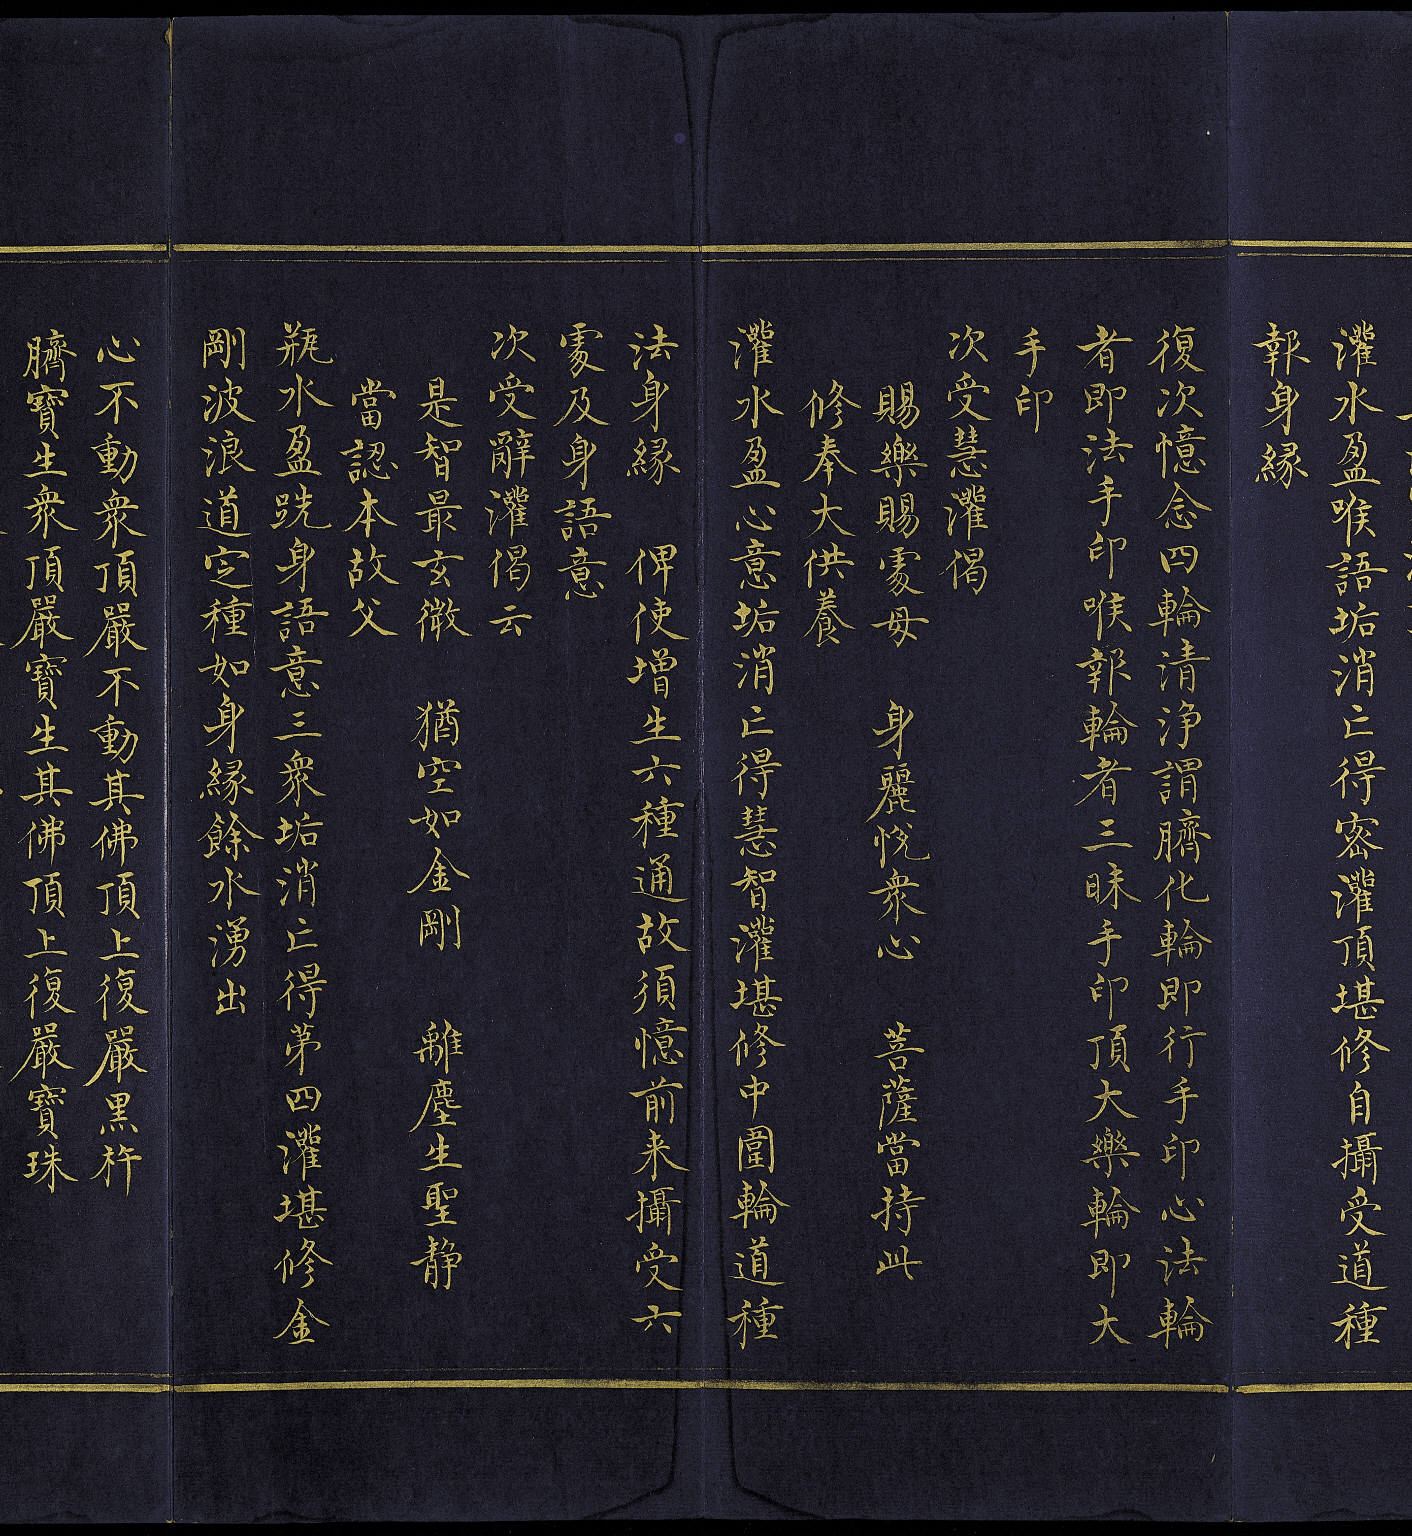 灌水盈喉語垢消亡得密灌頂堪修自攝受道種
報身緣
復次憶念四輪清淨謂臍化輪即行手印心法輪
者即法手印喉報輪者三昧手印頂大樂輪即大
手印
次受慧灌偈
賜樂賜處母　身麗悅衆心　菩薩當持此
修奉大供養
灌水盈心意垢消亡得慧智灌堪修中圍輪道種
法身緣　俾使增生六種通故須憶前来攝受六
處及身語意
次受辭灌偈云
是智最玄微　猶空如金剛　離塵生聖静
當認本故父
瓶水盈跣身語意三衆垢消亡得苐四灌堪修金
剛波浪道定種如身緣餘水湧出
心不動衆頂嚴不動其佛頂上復嚴黑杵
臍寶生衆頂嚴寶生其佛頂上復嚴寶珠